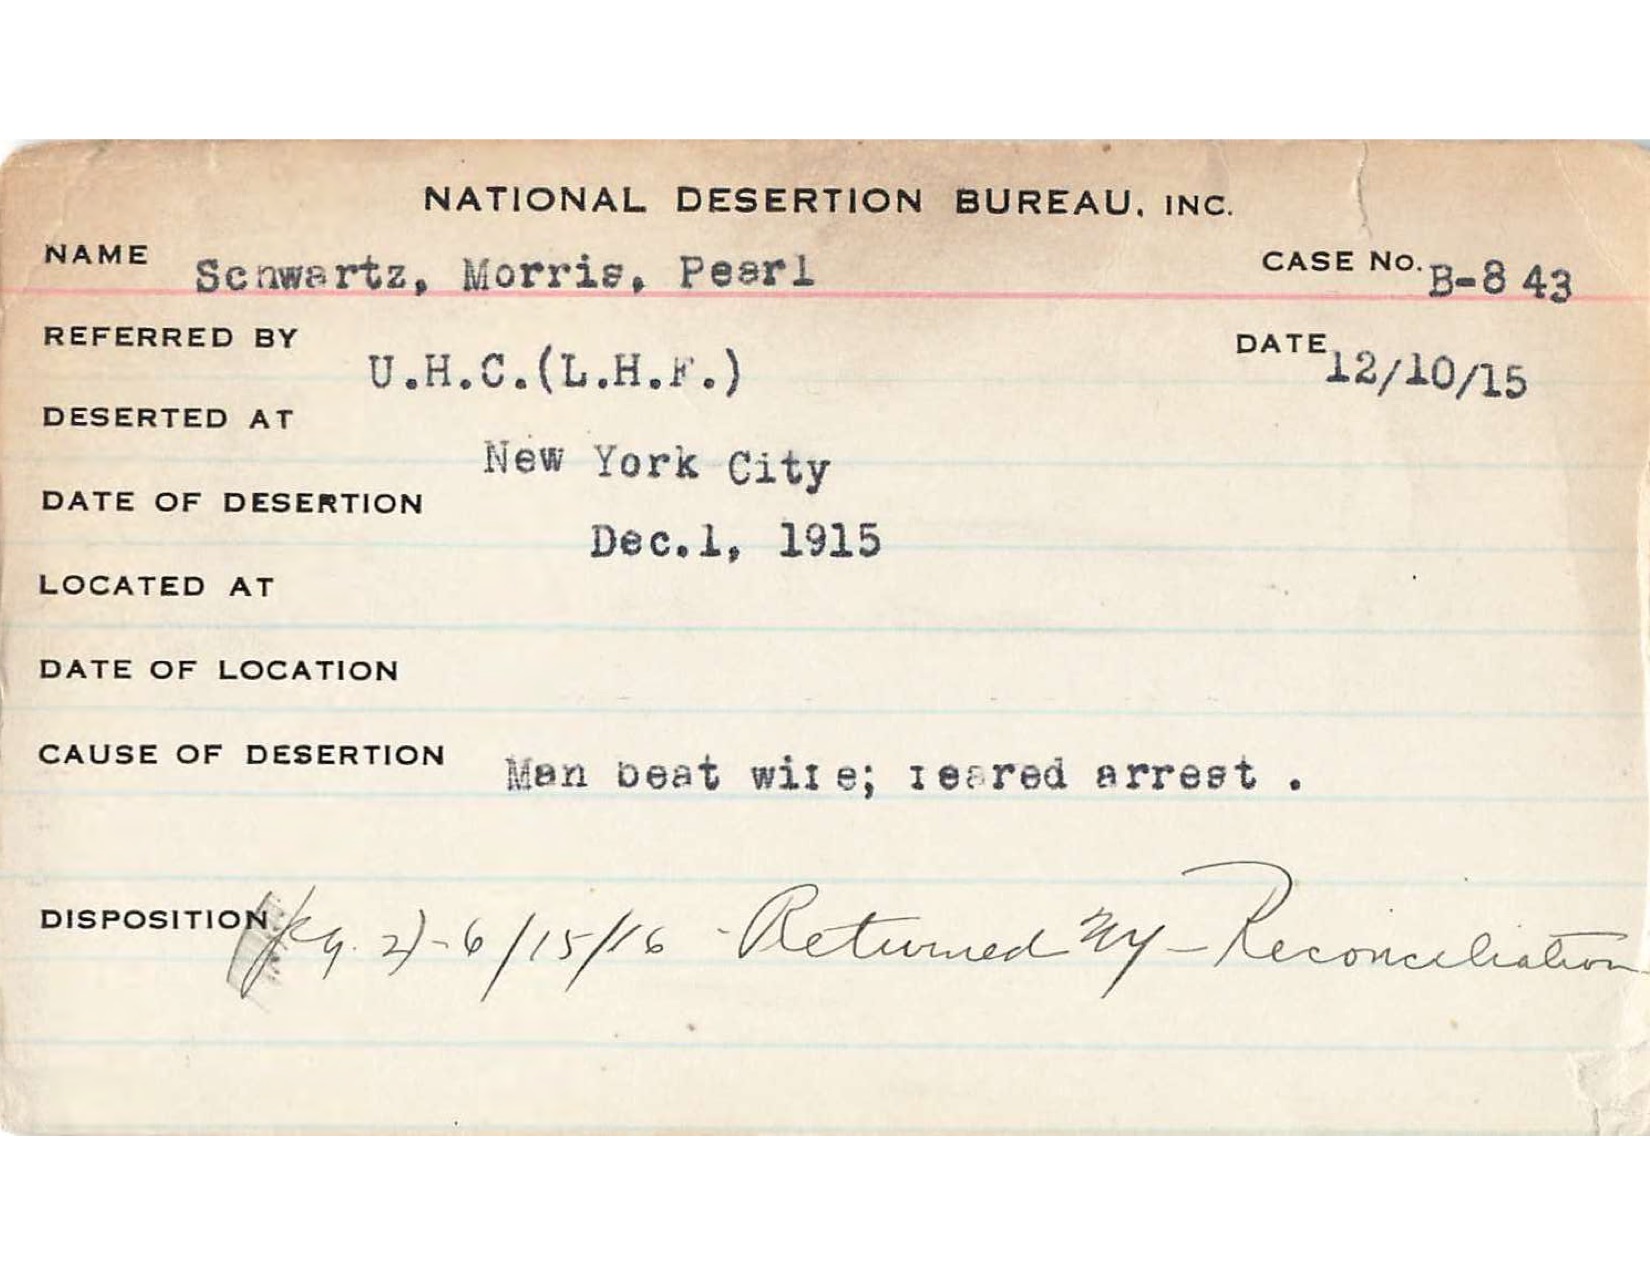 NATIONAL DESERTION BUREAU, INC.
NAME Schwartz, Morris, Pearl CASE No. B-843
REFERRED BY U.H.C.(L.H.F.) DATE 12/10/15
DESERTED AT New York City
DATE OF DESERTION Dec.1, 1915
LOCATED AT
DATE OF LOCATION
CAUSE OF DESERTION Man beat wife; feared arrest .
DISPOSITION 2) - 6/15/16 - Returned NY - Reconciliation